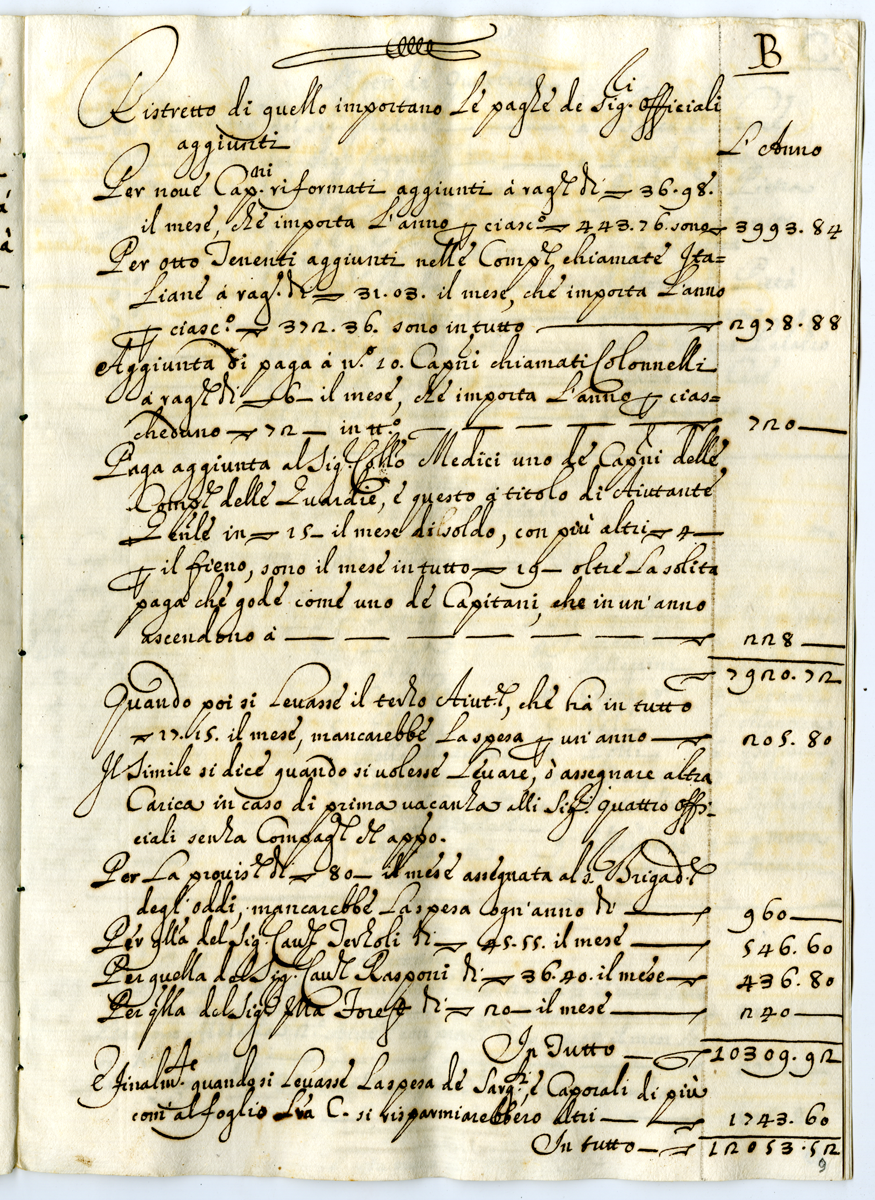 B
Ristretto di quello importano Le paghe de Sig.ri officiali
aggiunti
L'Anno
Per nove Cap.ni riformati aggiunti à rag.e di 36.98.
il mese, che importa L'anno p ciasc.o 443.76. sono 3993.84
Per otto Tenenti aggiunti nelle Comp.e chiamate Ita=
Liane à rag.e di 31.03. il mese, che importa L'anno
p ciasc.o 372.36. sono in tutto 2978.88
Aggiunta di paga à n.o 10. Capni chiamati Colonnelli
à rag.e di 6 il mese, che importa L'anno p cias=
cheduno 72 in tt.o 720
Paga aggiunta al Sig.r Collo Medici uno de Capni delle
Comp.e delle Guardie, e questo à titolo di Aiutante
Gnle in 15 il mese di soldo, con più altri 4
p il fieno, sono il mese in tutto 19 oltre La solita
paga che gode come uno de Capitani, che in un'anno
ascendono à 228
7920.72
Quando poi si Levasse il terzo Aiut.e, che hà in tutto
17.15. il mese, mancarebbe La spesa p un'anno 205.80
Il Simile si dice quando si volesse Levare, ò assegnare altra
Carica in caso di prima vacanza alli Sig.ri quattro offi=
ciali senza Compag.e et appo.
Per La provis.e di 80 il mese assegnata al s. Brigad.e
degl'oddi, mancarebbe La spesa ogn'anno di 960
Per qlla del Sig. Cau.e Tertoli di 45.55. il mese 546.60
Per quella del Sig. Cau.e Rasponi di 36.40. il mese 436.80
Per qlla del Sig.r di 20 il mese 240
In Tutto 10309.92
E Finalm.te quando si Levasse La spesa de Sarg.ti, e Caporali di più
com'al foglio Lra C. si risparmiarebbero altri 1743.60
In tutto 12053.52
9